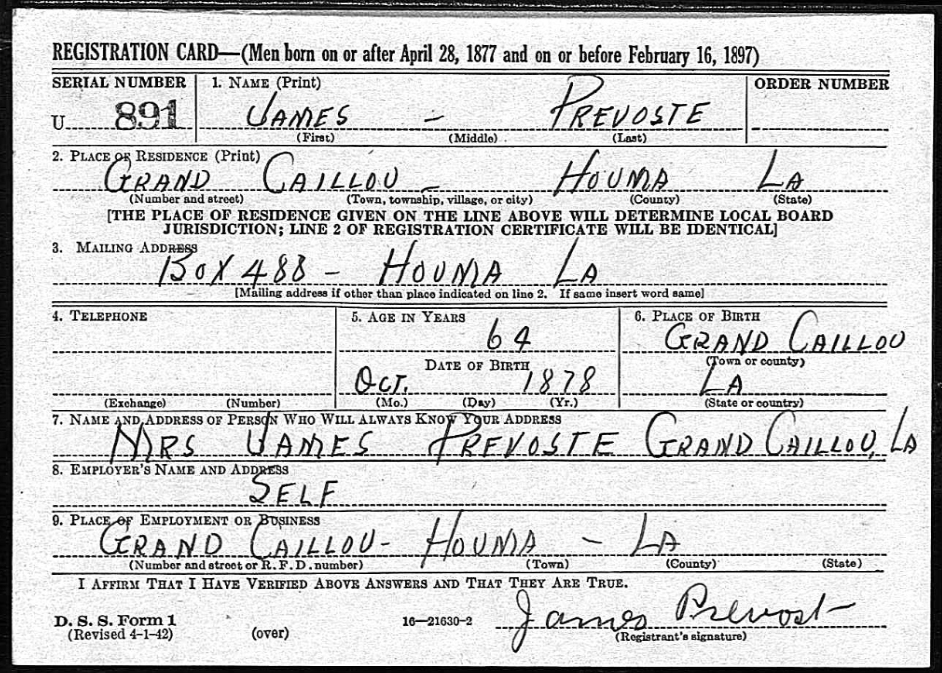 REGISTRATION CARD—(Men born on or after April 28, 1877 and on or before February 16, 1897)
SERIAL NUMBER 1. NAME (Print) ORDER NUMBER
U 891 JAMES - PREVOSTE
(First) (Middle) (Last)
2. PLACE OF RESIDENCE (Print)
GRAND CAILLOU - HOUMA LA
(Number and street) (Town, township, village, or city) (County) (State)
[THE PLACE OF RESIDENCE GIVEN ON THE LINE ABOVE WILL DETERMINE LOCAL BOARD
JURISDICTION; LINE 2 OF REGISTRATION CERTIFICATE WILL BE IDENTICAL]
3. MAILING ADDRESS
BOX 488 - HOUMA LA
[Mailing address if other than place indicated on line 2. If same insert word same]
4. TELEPHONE 5. AGE IN YEARS 6. PLACE OF BIRTH
64 GRAND CAILLOU
DATE OF BIRTH (Town or county)
OCT. 1878 LA
(Exchange) (Number) (Mo.) (Day) (Yr.) (State or country)
7. NAME AND ADDRESS OF PERSON WHO WILL ALWAYS KNOW YOUR ADDRESS
MRS JAMES PREVOSTE GRAND CAILLOU, LA
8. EMPLOYER'S NAME AND ADDRESS
SELF
9. PLACE OF EMPLOYMENT OR BUSINESS
GRAND CAILLOU - HOUMA - LA
(Number and street or R. F. D. number) (Town) (County) (State)
I AFFIRM THAT I HAVE VERIFIED ABOVE ANSWERS AND THAT THEY ARE TRUE.
D. S. S. Form 1 16—21630-2 James Prevost
(Revised 4-1-42) (over) (Registrant's signature)